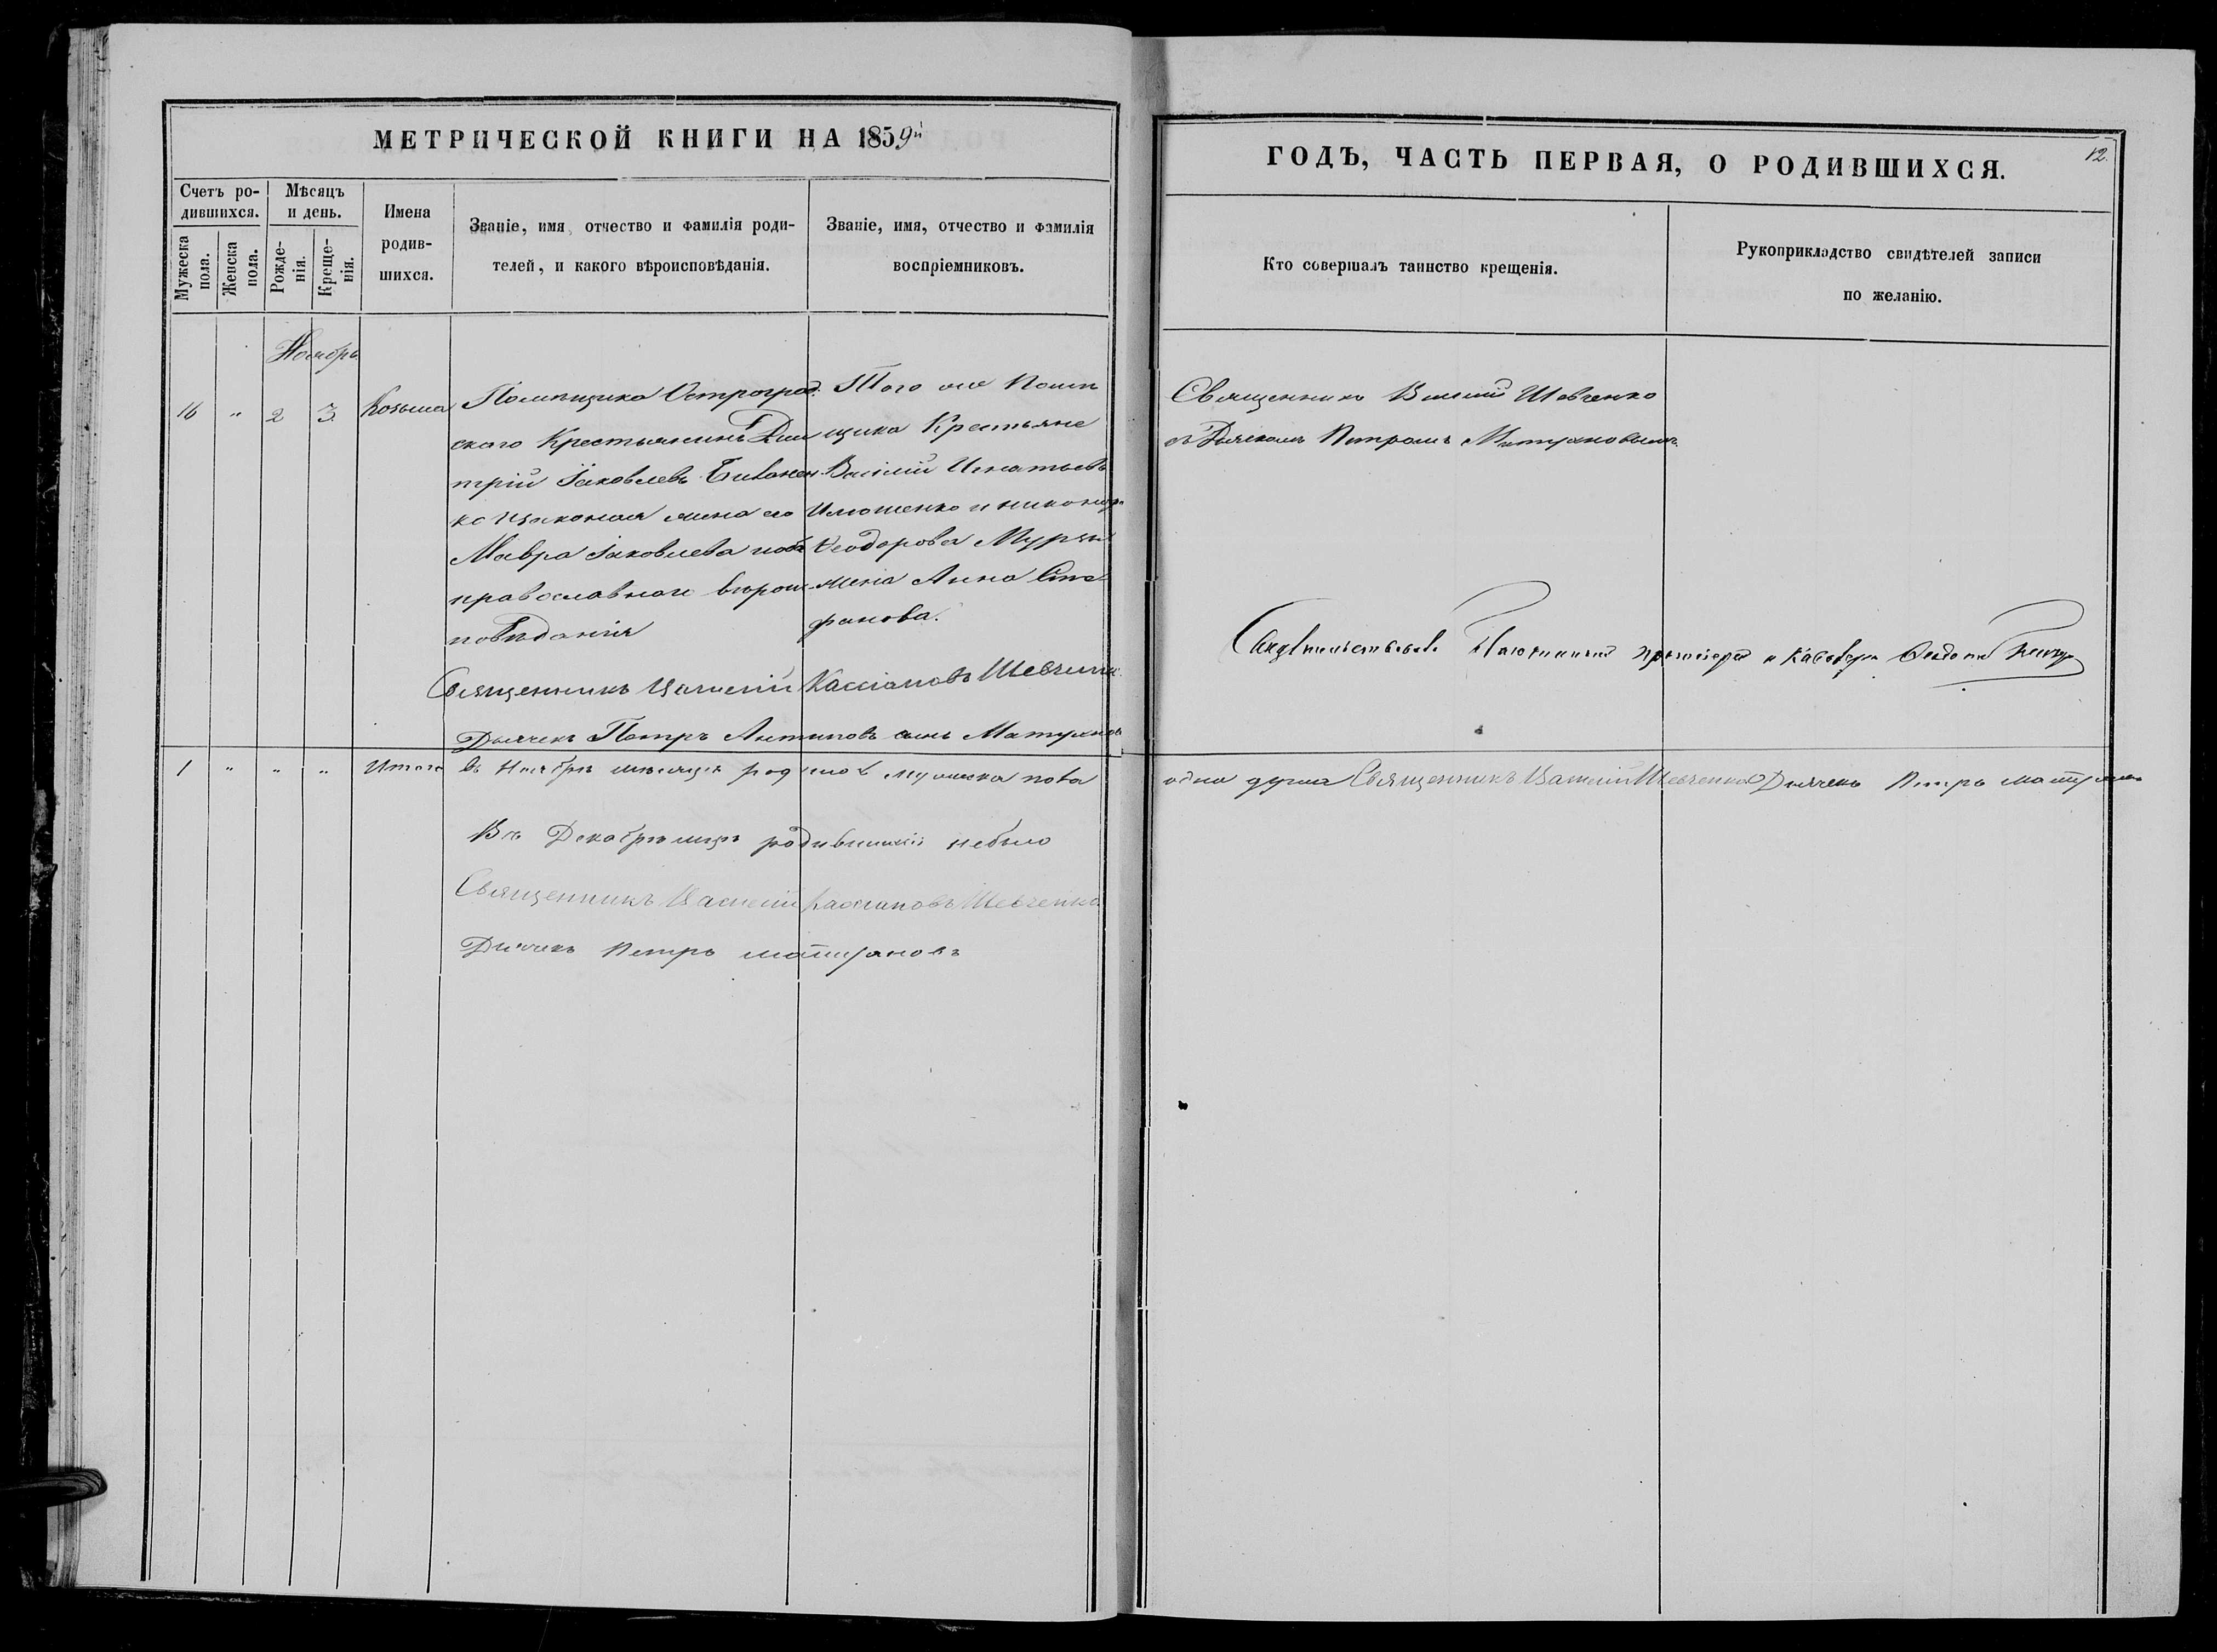 МЕТРИЧЕСКОЙ КНИГИ НА 1859й
Счетъ родившихся.
Мѣсяцъ и день.
Мужеска пола.
Женска пола.
Рожденія.
Крещенія.
Имена родившихся.
Званіе, имя, отчество и фамилія родителей, и какого вѣроисповѣданія.
Званіе, имя, отчество и фамилія воспріемниковъ.
Ноябрь
16 " 2 3. Козьма
Помѣщика Остроград
скаго Крестьянинъ Дми
трій Іаковлевъ
ко и законная жена его
Мавра Іаковлева оба
православнаго вѣроис
повѣданія
Того же Помѣ
щика Крестьяне
Василій Игнатьевъ
и
Ѳеодорова
жена Анна Сте
фанова.
Священникъ Василій Кассіановъ Шевченко
Дьячекъ Петръ Антиповъ сынъ
1 " " " Итого въ Ноябрѣ мѣсяцѣ родилось мужеска пола
Въ Декабрѣ мцѣ родившихся небыло
Священникъ Василій Кассіановъ Шевченко
Дьячекъ Петръ
ГОДЪ, ЧАСТЬ ПЕРВАЯ, О РОДИВШИХСЯ.
12.
Кто совершалъ таинство крещенія.
Рукоприкладство свидѣтелей записи по желанію.
Священникъ Василій Шевченко
съ Дьячкомъ Петромъ
Свидѣтельствовалъ и
одна душа Священникъ Василій Шевченко Дьячекъ Петръ